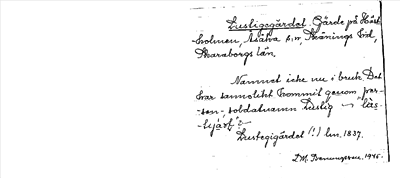 Lustigsgärdet. Gärde på Håst-
holmen, Åsaka sn, Skånings hd,
Skaraborgs län.
Namnet icke nu i bruk. Det
har sannolikt kommit genom per-
son-, soldatnamn Lustig
Lustegigärdet (!) hm. 1837.
1945.